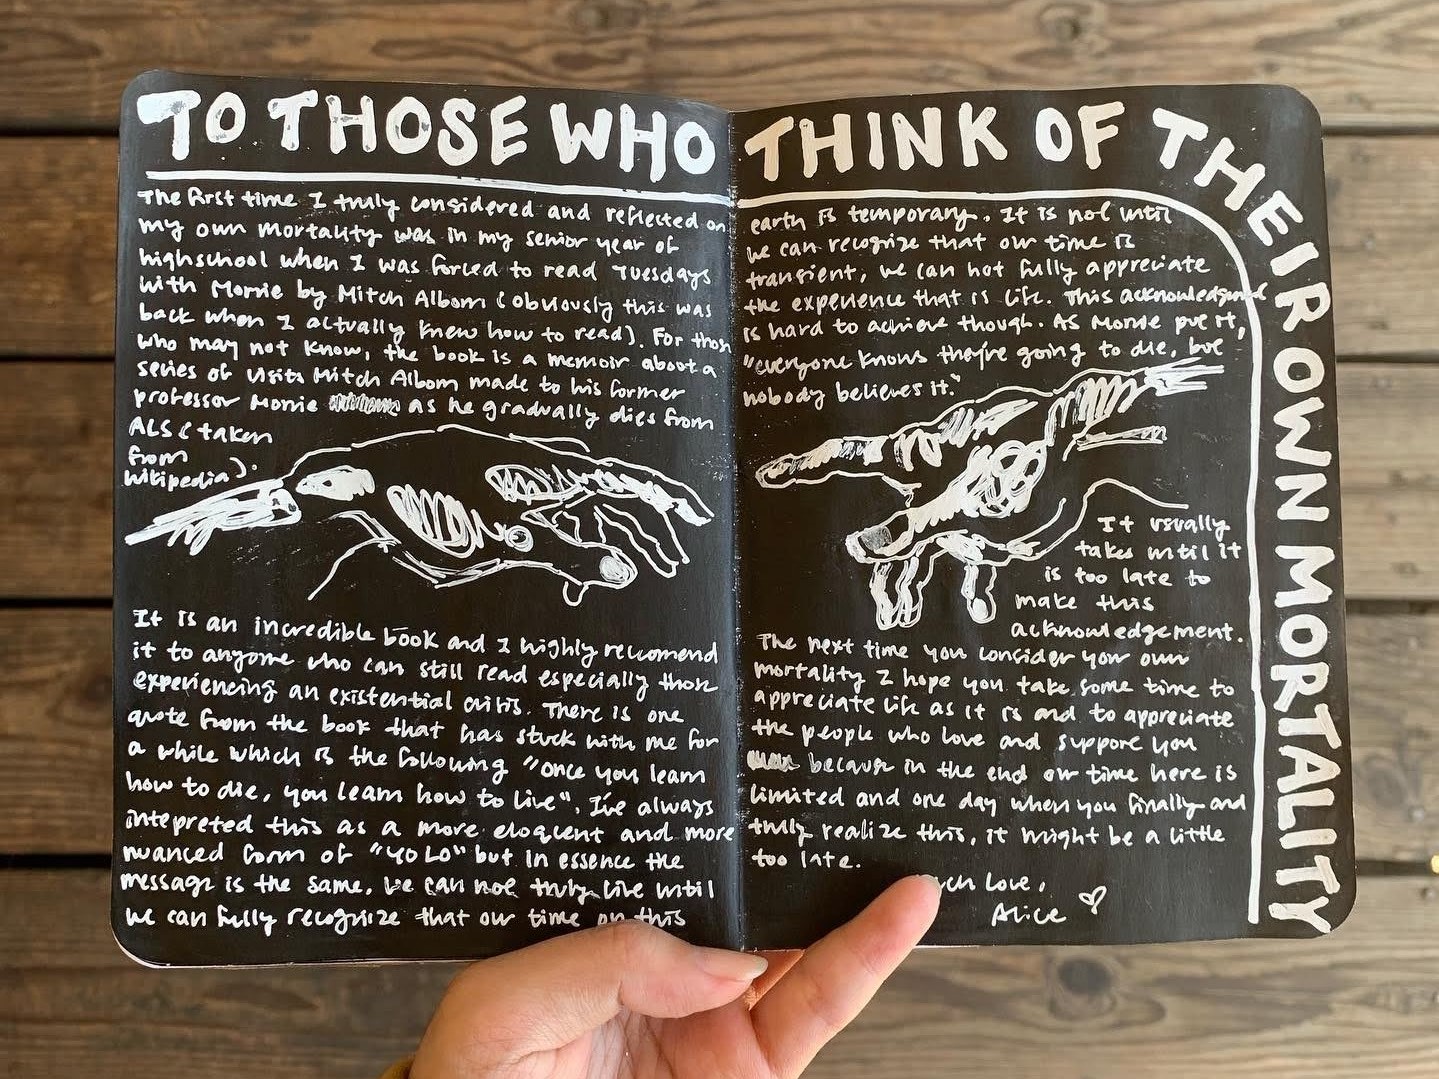 TO THOSE WHO THINK OF THEIR OWN MORTALITY
The first time I truly considered and reflected on
my own mortality was in my senior year of
highschool when I was forced to read Tuesdays
with Morrie by Mitch Albom (obviously this was
back when I actually knew how to read). For those
who may not know, the book is a memoir about a
series of visits Mitch Albom made to his former
professor Morrie as he gradually dies from
ALS (taken
from
wikipedia).
It is an incredible book and I highly reccomend
it to anyone who can still read especially those
experiencing an existential crisis. There is one
quote from the book that has stuck with me for
a while which is the following "once you learn
how to die, you learn how to live". I've always
intepreted this as a more eloquent and more
nuanced form of "YOLO" but in essence the
message is the same. We can not truly live until
we can fully recognize that our time on this
earth is temporary. It is not until
we can recognize that our time is
transient, we can not fully appreciate
the experience that is life. This acknowledgment
is hard to achieve though. As Morrie put it,
"everyone knows they're going to die, but
nobody believes it."
It usually
takes until it
is too late to
make this
acknowledgement.
The next time you consider your own
mortality I hope you take some time to
appreciate life as it is and to appreciate
the people who love and support you
because in the end our time here is
limited and one day when you finally and
truly realize this, it might be a little
too late.
Love,
Alice